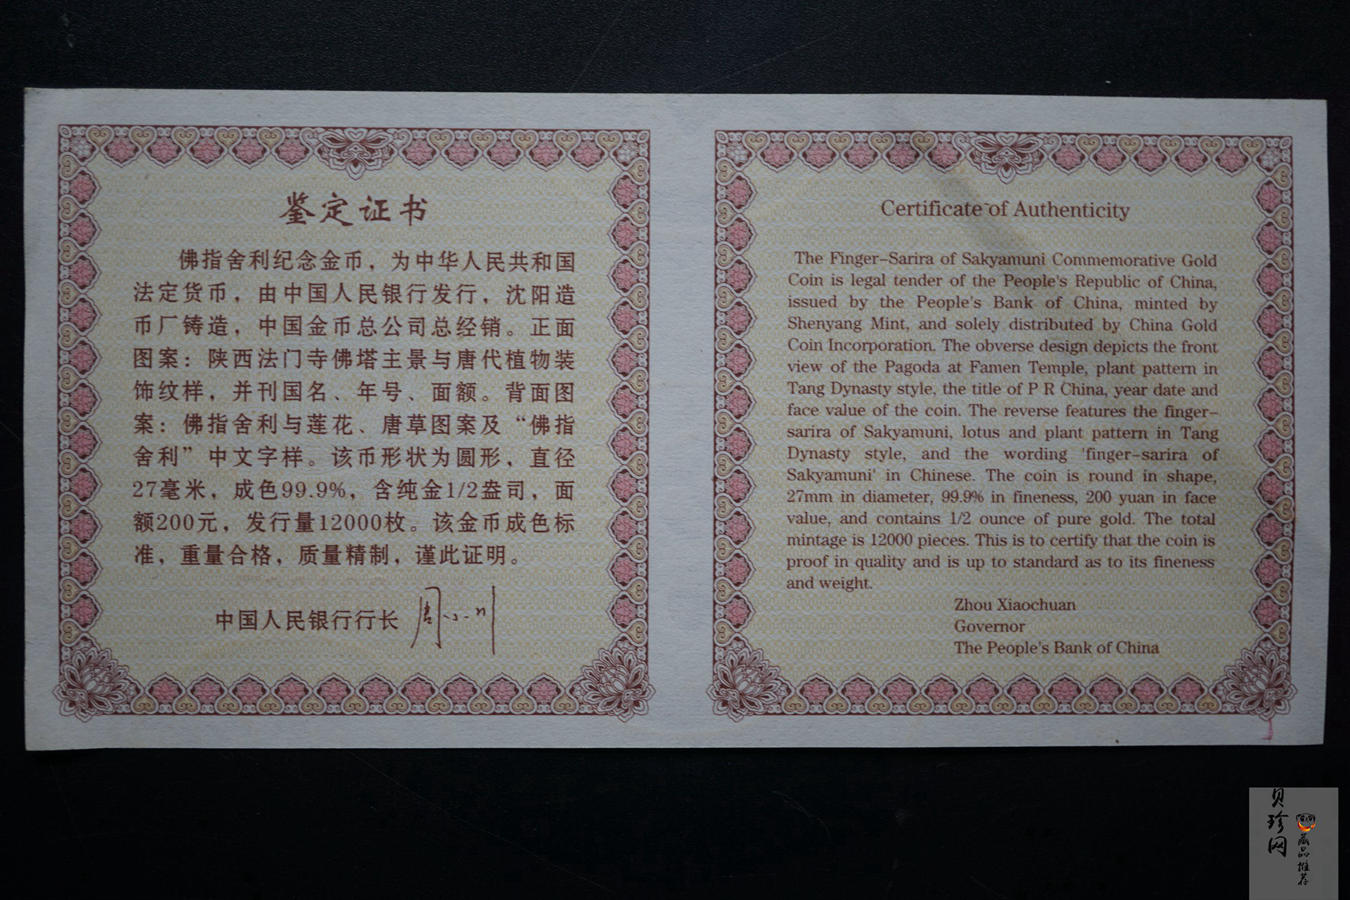 鉴定证书
佛指舍利纪念金币，为中华人民共和国
法定货币，由中国人民银行发行，沈阳造
币厂铸造，中国金币总公司总经销。正面
图案：陕西法门寺佛塔主景与唐代植物装
饰纹样，并刊国名、年号、面额。背面图
案：佛指舍利与莲花、唐草图案及“佛指
舍利”中文字样。该币形状为圆形，直径
27毫米，成色99.9%，含纯金1/2盎司，面
额200元，发行量12000枚。该金币成色标
准，重量合格，质量精制，谨此证明。
中国人民银行行长 周小川
Certificate of Authenticity
The Finger-Sarira of Sakyamuni Commemorative Gold
Coin is legal tender of the People's Republic of China,
issued by the People's Bank of China, minted by
Shenyang Mint, and solely distributed by China Gold
Coin Incorporation. The obverse design depicts the front
view of the Pagoda at Famen Temple, plant pattern in
Tang Dynasty style, the title of P R China, year date and
face value of the coin. The reverse features the finger-
sarira of Sakyamuni, lotus and plant pattern in Tang
Dynasty style, and the wording 'finger-sarira of
Sakyamuni' in Chinese. The coin is round in shape,
27mm in diameter, 99.9% in fineness, 200 yuan in face
value, and contains 1/2 ounce of pure gold. The total
mintage is 12000 pieces. This is to certify that the coin is
proof in quality and is up to standard as to its fineness
and weight.
Zhou Xiaochuan
Governor
The People's Bank of China
贝珍网
藏品推荐